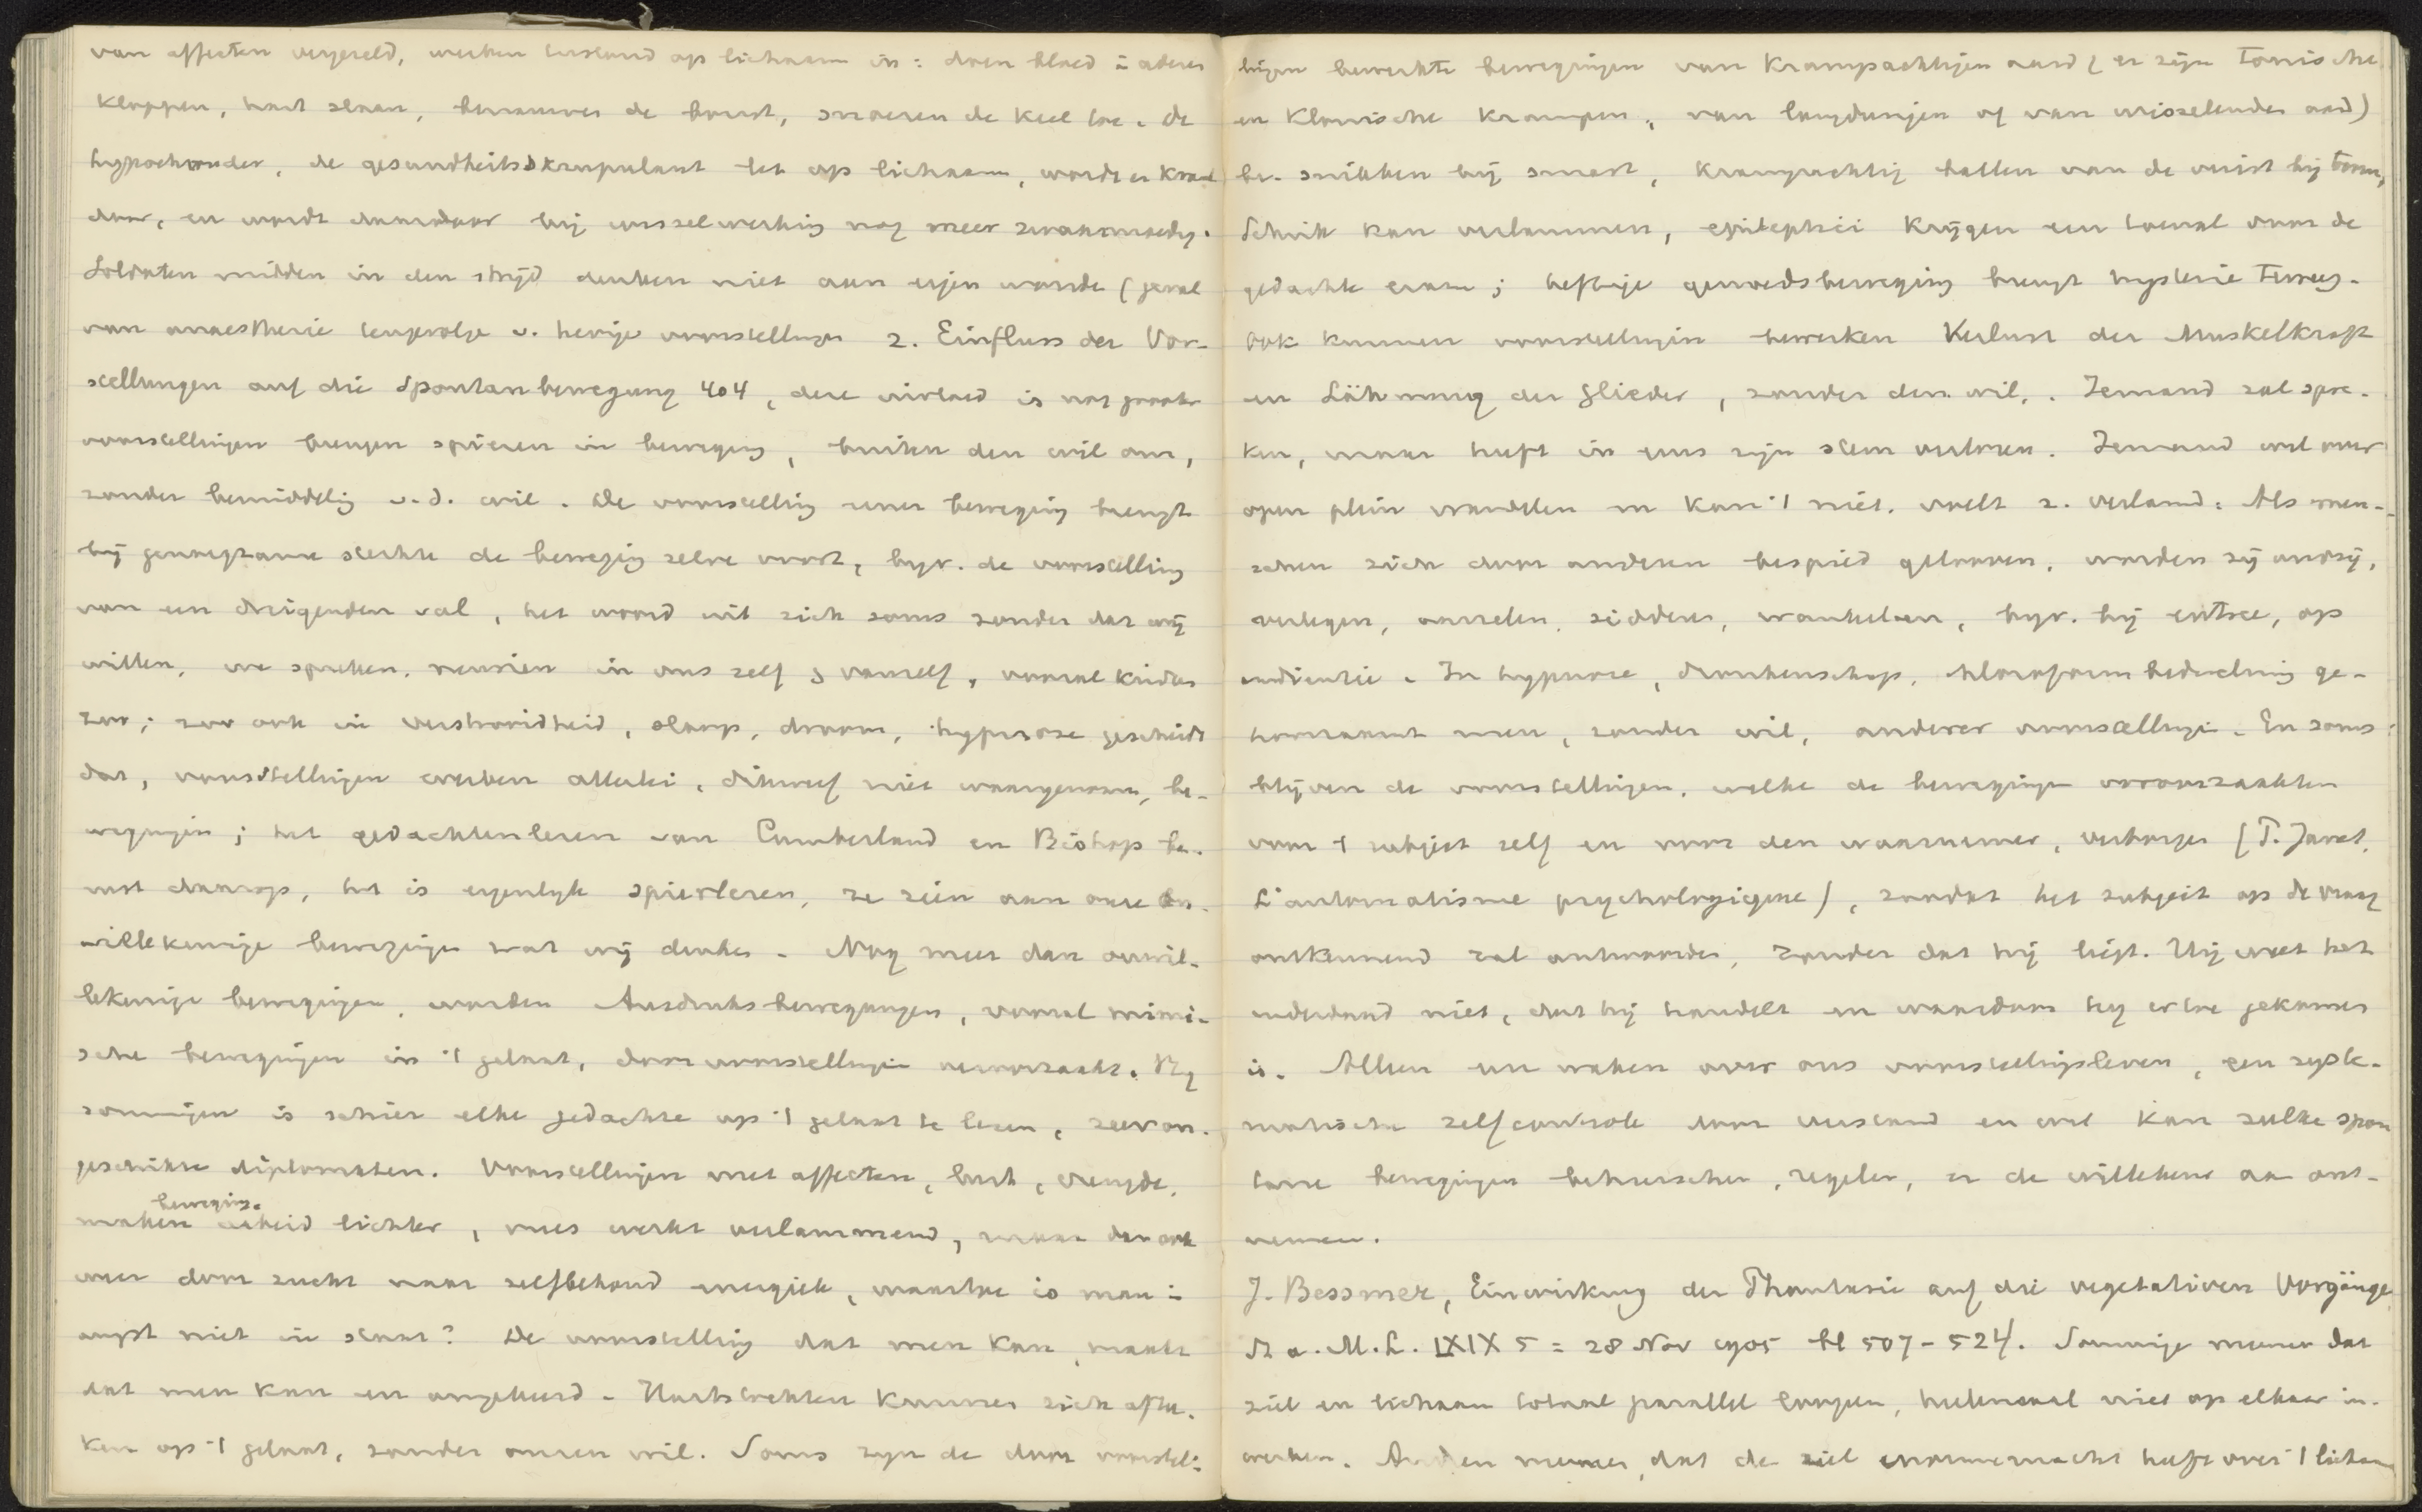 van affecten vergezeld, werken bestend op lichaam in: doen bloed i aderen
kloppen, hart slaan, benauwen de borst, snoeren de keel toe. de
hypochonder, de gesundheitsskrupulant let op lichaam, wordt er krank
door, en wordt daardoor bij wisselwerking nog meer zwaarmoedig.
Soldaten midden in den strijd denken niet aan eigen wonde (geval
van anaesthesie tengevolge v. hevige voorstellingen 2. Einfluss der Vor-
stellungen auf die Spontanbewegung 404, deze invloed is nog grooter
voorstellingen brengen spieren in beweging, buiten den wil om,
zonder bemiddeling v.d. wil. De voorstelling eener beweging brengt
bij genoegzame sterkte de beweging zelve voort, bijv. de voorstelling
van een dreigenden val, het woord uit zich soms zonder dat wij
willen, we spreken, in ons zelf & vanself, vooral kinderen
zoo; zoo ook in verstrooidheid, slaap, droom, hypnose geschiedt
dat, voorstellingen werken allerlei, dikwerf niet waargenomen, be-
wegingen; het gedachtenlezen van Cumberland en Bishop be-
rust daarop, het is eigenlijk spierlezen, ze zien aan onze on-
willekeurige bewegingen wat wij denken. Nog meer dan onwil-
lekeurige bewegingen, worden Ausdruksbewegungen, vooral mimi-
sche bewegingen in 't gelaat, door voorstellingen veroorzaakt. Bij
sommigen is schier elke gedachte op 't gelaat te lezen, zeer on-
geschikte diplomaten. Voorstellingen met affecten, lust, vreugde,
bewegings-
maken heid lichter, vrees werkt verlammend, maar dan ook
weer door zucht naar zelfbehoud energiek, waartoe is man in
angst niet in staat? De voorstelling dat men kan, maakt
dat men kan en omgekeerd. Hartstochten kunnen zich afte-
ken op 't gelaat, zonder onzen wil. Soms zijn de door voorstel-
lingen bewerkte bewegingen van krampachtigen aard (er zijn tonische
en klonische krampen, van langdurigen of van wisselenden aard)
bv. snikken bij smart, krampachtig ballen van de vuist bij toorn,
Schrik kan verlammen, epileptici krijgen een toeval door de
gedachte eraan; heftige gemoedsbeweging brengt hysterie teweeg.
Ook kunnen voorstellingen bewerken Verlust der Muskelkraft
en Lähmung der Glieder, zonder den wil. Iemand zal spre-
ken, maar heeft in eens zijn stem verloren. Iemand wil over
open plein wandelen en kan 't niet, voelt z. verlamd. Als men-
schen zich door anderen bespied gelooven, worden zij onvrij,
verlegen, aarzelen, sidderen, wankelen, bijv. bij entree, op
audientie. In hypnose, dronkenschap, chloroformbedwelming ge-
hoorzaamt men, zonder wil, anderer voorstellingen. En soms
blijven de voorstellingen, welke de bewegingen veroorzaakten
voor 't subject zelf en voor den waarnemer, verborgen (P. Janet,
L'automatisme psychologique), zoodat het subject op de vraag
ontkennend zal antwoorden, zonder dat hij liegt. Hij weet het
inderdaad niet, dat hij handelt en waardoor hij ertoe gekomen
is. Alleen een waken over ons voorstellingsleven, een syste-
matische zelfcontrole door verstand en wil kan zulke spon
tane bewegingen beheerschen, regelen, en de willekeur aan ont-
nemen.
J. Bessmer, Einwirkung der Phantasie auf die vegetativen Vorgänge
St a. M. L. LXIX 5 = 28 Nov 1905 bl 507-524. Sommige meenen dat
ziel en lichaam totaal parallel loopen, heelemaal niet op elkaar in-
werken. Anderen meenen, dat de ziel enorme macht heeft over 't lichaam